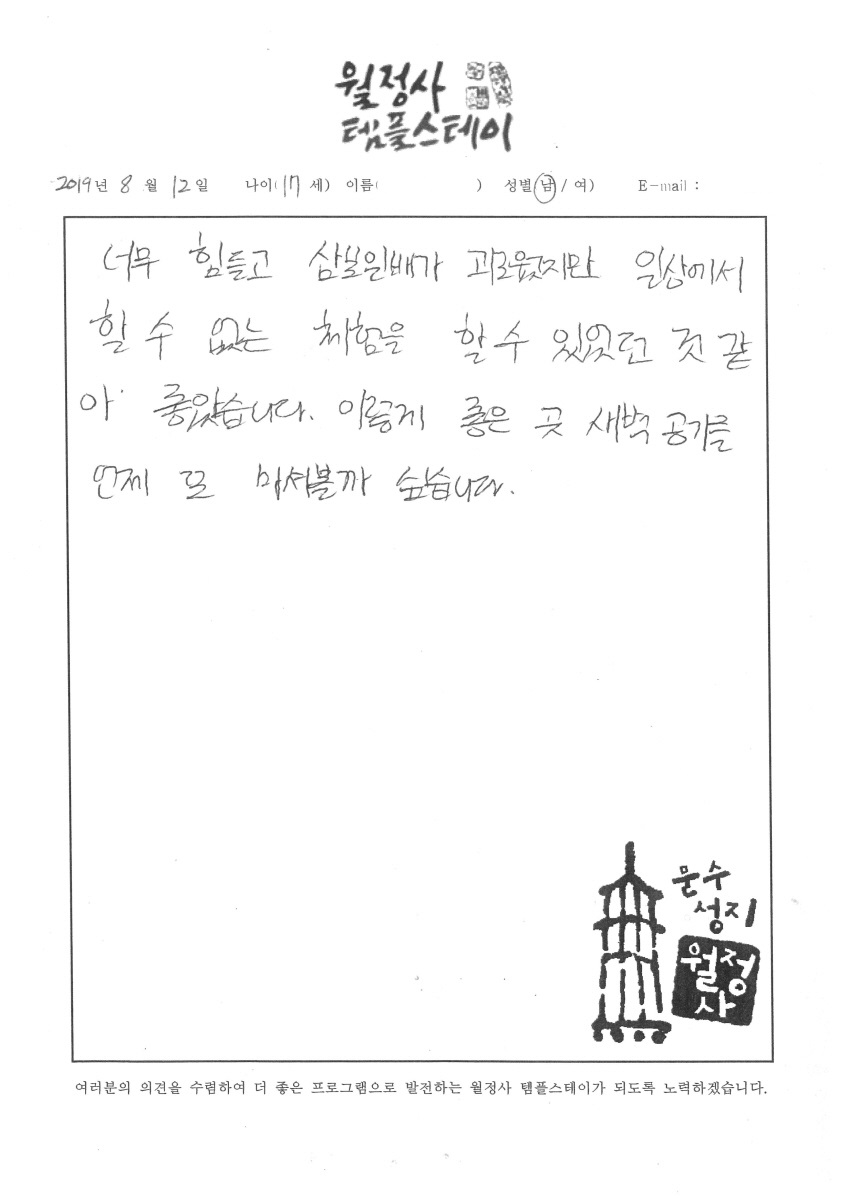 월정사
템플스테이
2019년 8월 12일 나이(17세) 이름( ) 성별(남/여) E-mail :
너무 힘들고 삼보일배가 괴로웠지만 일상에서
할 수 없는 체험을 할 수 있었던 것 같
아 좋았습니다. 이렇게 좋은 곳 새벽 공기를
언제 또 마셔볼까 싶습니다.
문수
성지
월정
사
여러분의 의견을 수렴하여 더 좋은 프로그램으로 발전하는 월정사 템플스테이가 되도록 노력하겠습니다.